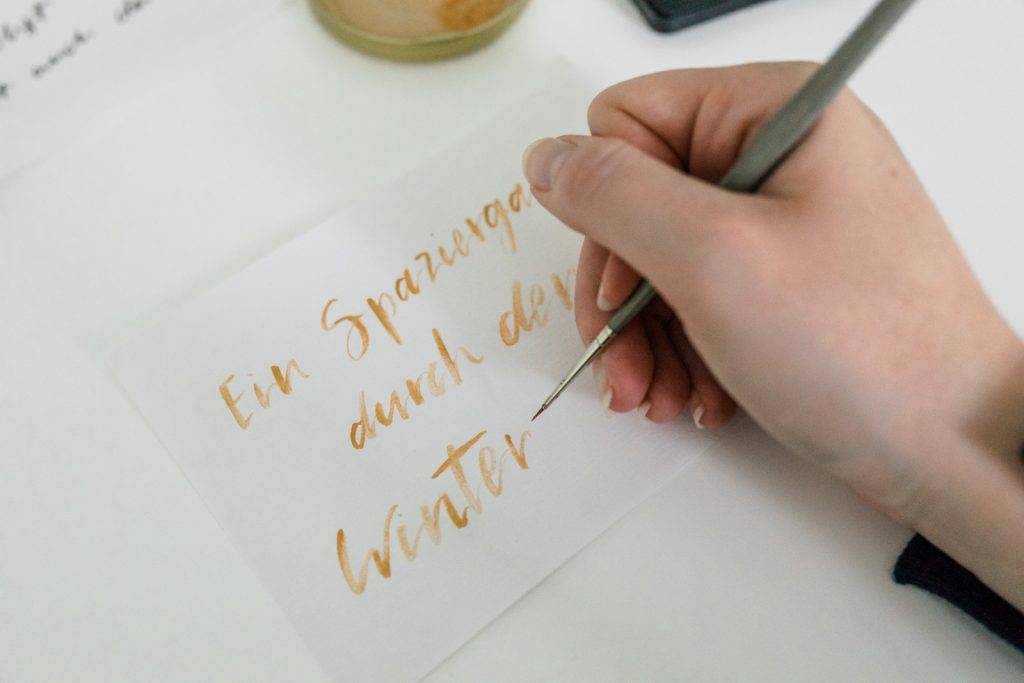 Ein Spazierga
durch den
Winter